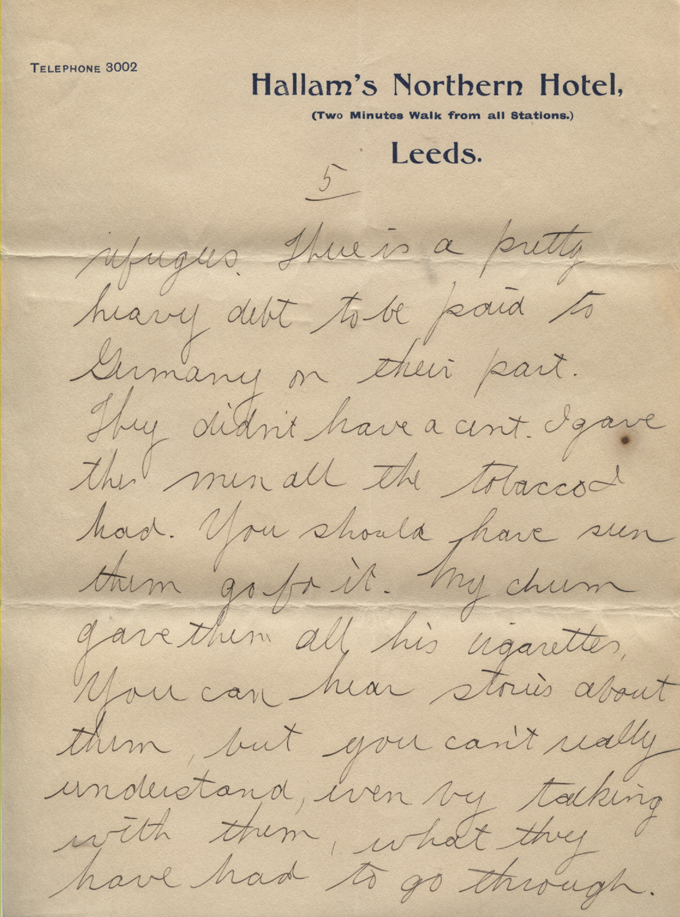 TELEPHONE 3002
Hallam's Northern Hotel,
(Two Minutes Walk from all Stations.)
Leeds.
5
refugees. There is a pretty
heavy debt to be paid to
Germany on their part.
They didn't have a cent. I gave
the men all the tobacco I
had. You should have seen
them go for it. My chum
gave them all his cigarettes,
You can hear stories about
them, but you can't really
understand, even by talking
with them, what they
have had to go through.